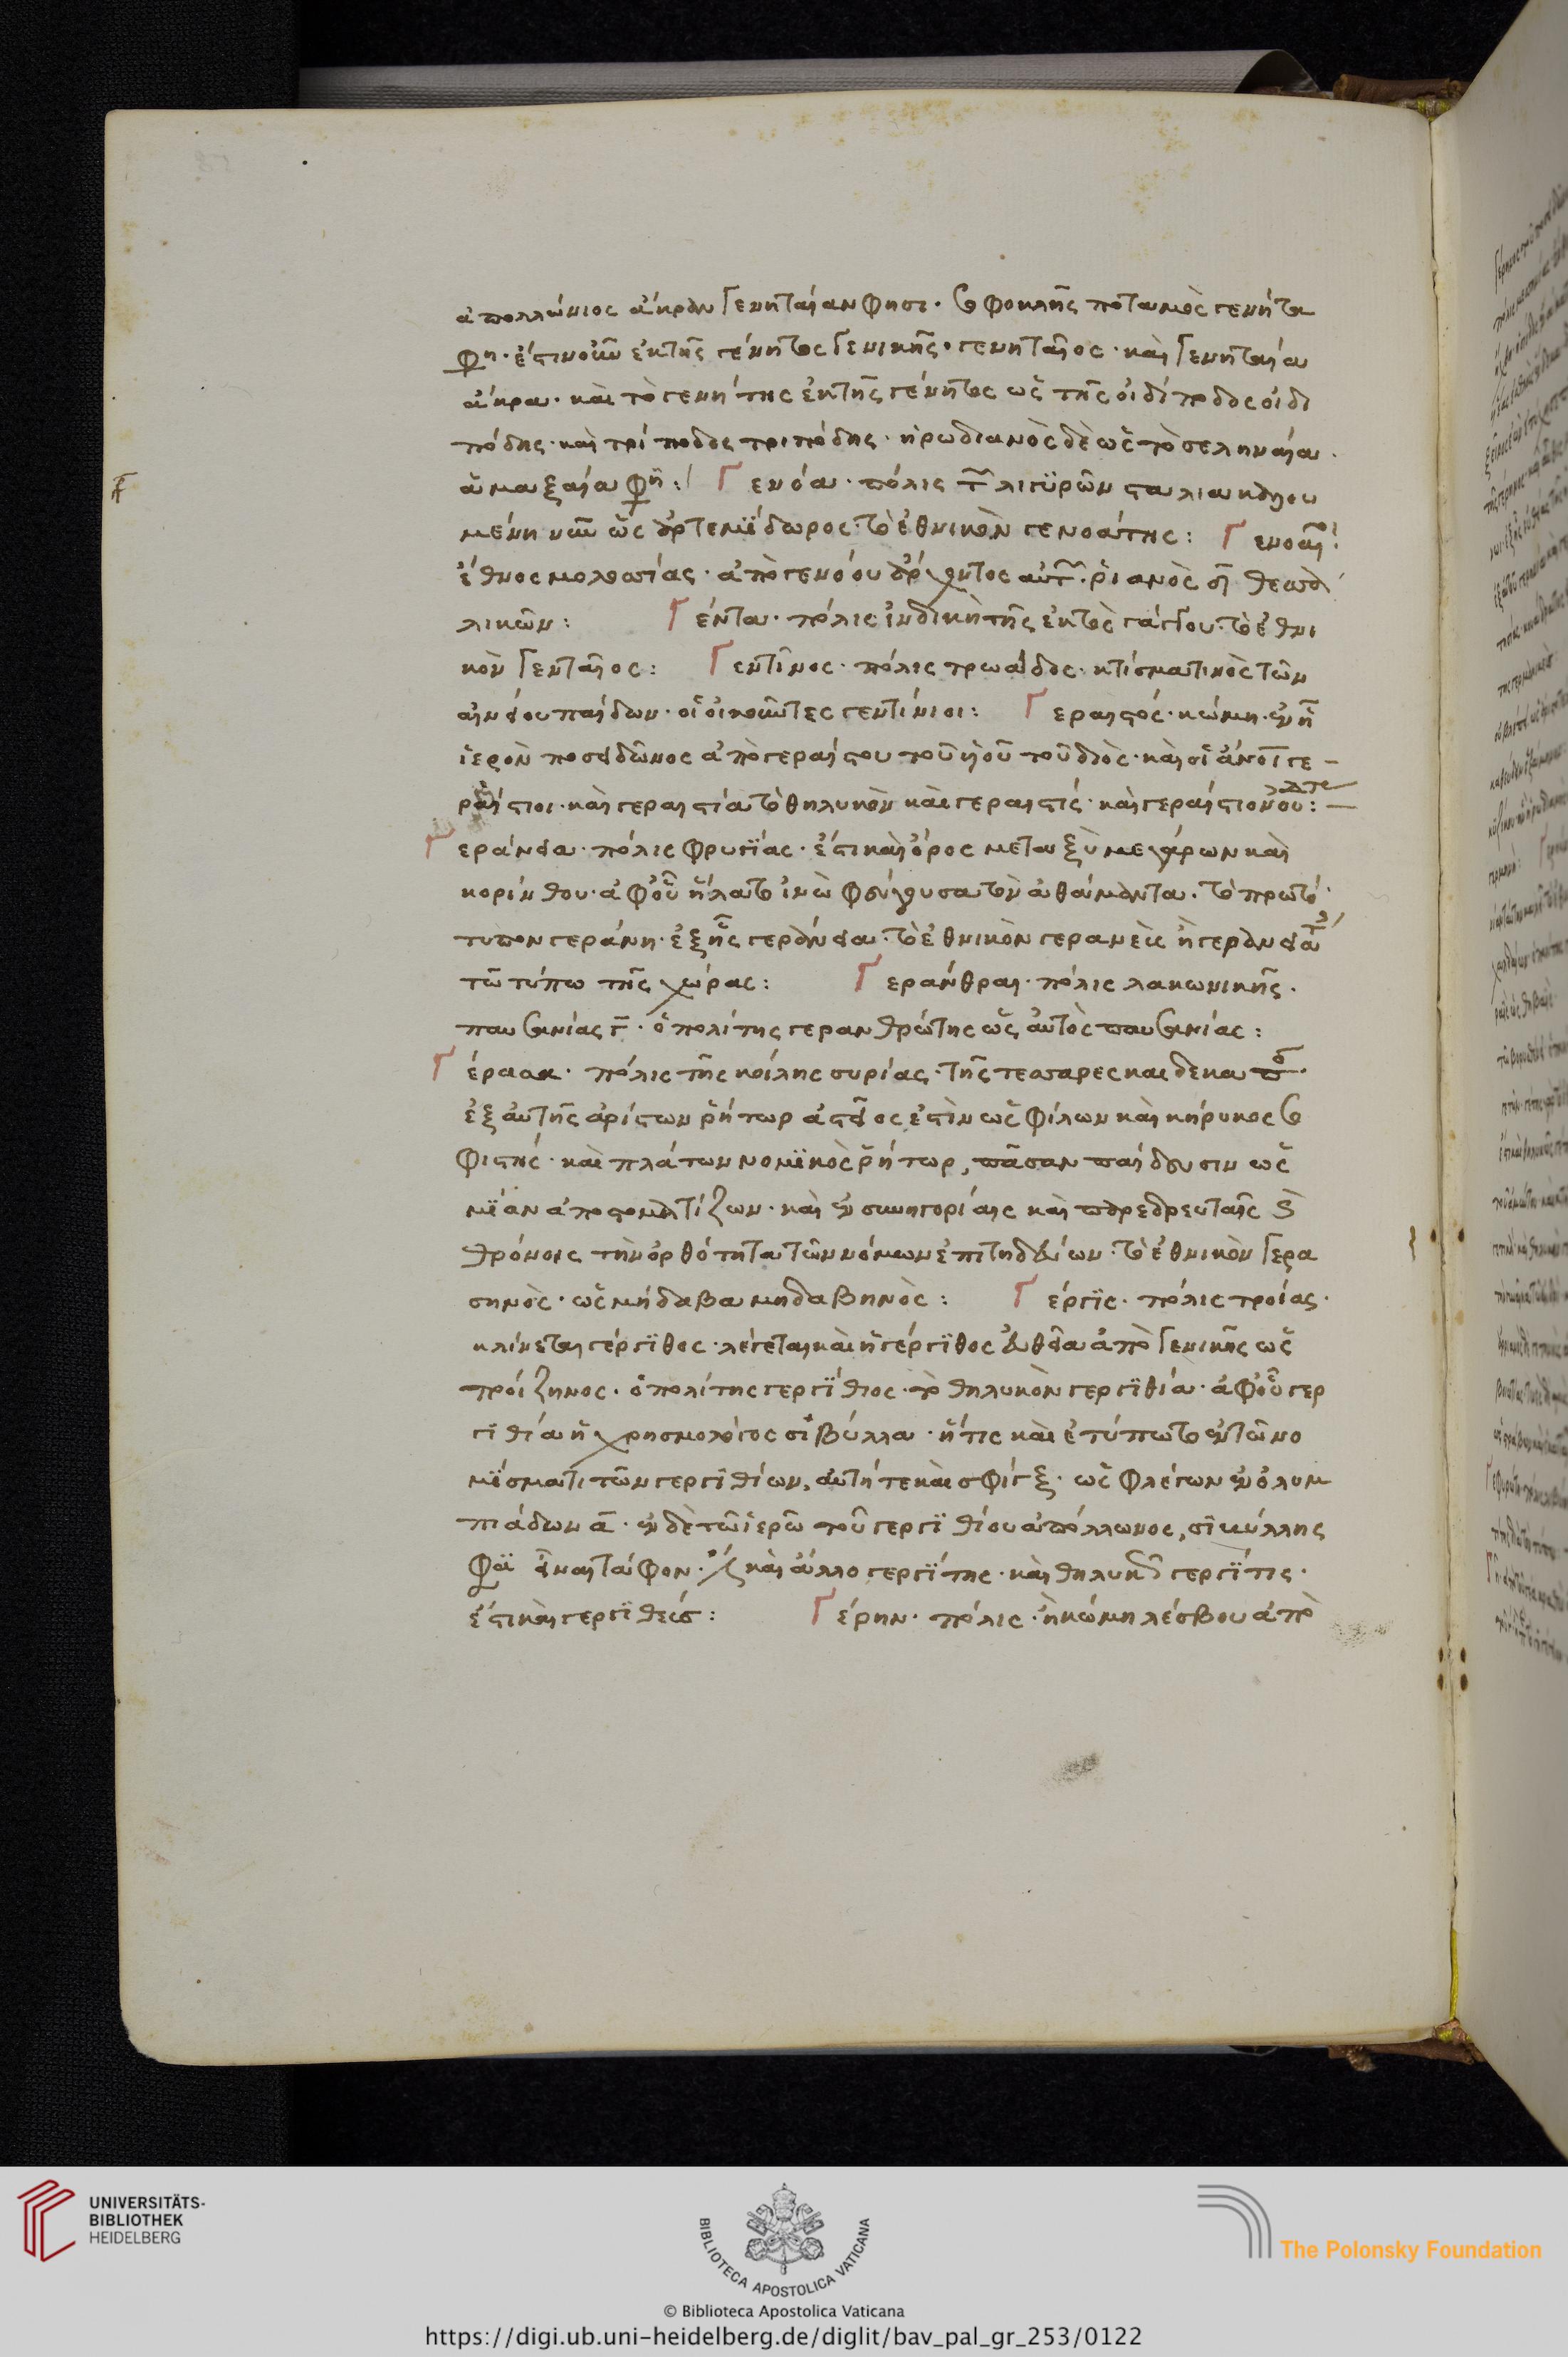 ἀπολλώνιος ἄκραν γενηταίαν φησι· σοφοκλῆς ποταμὸς γενήτα
φη· ἔστιν οὖν ἐκ τῆς γένητος γενικῆς· γενηταῖος· καὶ γενηταία
ἄκρα· καὶ τὸ γενήτης ἐκ τῆς γένητος ὡς τῆς οἰδίποδος οἰδι
πόδης· καὶ τρίποδος τριπόδης· ἡρωδιανὸς δὲ ὡς τὸ σεληναία·
ἁμαξαία φη: Γενόα· πόλις τῶν λιγύρων σταλια καλου
μένη νῦν ὡς ἀρτεμίδωρος· τὸ ἐθνικὸν γενοάτης: Γενοαῖ
ἔθνος μολοσσίας· ἀπὸ γενόου ἄρχοντος αὐτῶν· ῥιανὸς θεσσα
λικῶν: Γέντα· πόλις ἰνδικὴ τῆς ἐκτὸς γάγγου· τὸ ἐθνι
κὸν γενταῖος: Γεντῖνος· πόλις τρωάδος· κτίσμα τινὸς τῶν
αἰνείου παίδων· οἱ οἰκοῦντες γεντίνιοι: Γεραιστός· κώμη· ἐν ᾗ
ἱερὸν ποσειδῶνος ἀπὸ γεραίστου τοῦ υἱοῦ τοῦ διὸς· καὶ οἱ ἄνοι γε
ραίστιοι· καὶ γεραιστία τὸ θηλυκὸν καὶ γεραιστίς· καὶ γεραίστιον οὐ:
Γεράνεια· πόλις φρυγίας· ἔστι καὶ ὄρος μεταξὺ μεγάρων καὶ
κορίνθου· ἀφ' οὗ ἥλατο ἰνὼ φεύγουσα τὸν ἀθάμαντα· τὸ πρωτό
τυπον γεράνη· ἐξ ἧς γεράνεια· τὸ ἐθνικὸν γερανεὺς ἢ γερανειάτης
τῶ τύπω τῆς χώρας: Γεράνθραι· πόλις λακωνικῆς·
παυσανίας γ· ὁ πολίτης γερανθρώτης ὡς αὐτὸς παυσανίας:
Γέρασα· πόλις τῆς κοίλης συρίας· τῆς τεσσαρεσκαιδεκαπό
ἐξ αὐτῆς ἀρίστων ῥήτωρ ἀστεῖος ἐστὶν ὡς φίλων καὶ κήρυκος σο
φιστής· καὶ πλάτων νομικὸς ῥήτωρ, πᾶσαν παίδευσιν ὡς
μίαν ἀποστοματίζων· καὶ ἐν συνηγορίαις καὶ παρεδρευταῖς καὶ
θρόνοις τὴν ὀρθότητα τῶν νόμων ἐπιτηδεύων· τὸ ἐθνικὸν γερα
σηνὸς· ὡς μήδαβα μηδαβηνὸς: Γέργις· πόλις τροίας·
κλίνεται γέργιθος· λέγεται καὶ ἡ γέργιθος εὐθεῖα ἀπὸ γενικῆς ὡς
τροίζηνος· ὁ πολίτης γεργίθιος· τὸ θηλυκὸν γεργιθία· ἀφ' οὗ γερ
γιθία ἡ χρησμολόγος σιβύλλα· ἥτις καὶ ἐτύπωτο ἐν τῶ νο
μίσματι τῶν γεργιθίων, αὐτή τε καὶ σφίγξ· ὡς φλέγων ἐν ὀλυμ
πιάδων α· ἐν δὲ τῶ ἱερῶ τοῦ γεργιθίου ἀπόλλωνος, σιβύλλης
φασὶν εἶναι τάφον· καὶ ἄλλο γεργίτης· καὶ θηλυκὸν γεργίτις·
ἔστι καὶ γεργιθεύς: Γέρην· πόλις· ἢ κώμη λέσβου ἀπὸ
UNIVERSITÄTS-
BIBLIOTHEK
HEIDELBERG
BIBLIOTECA APOSTOLICA VATICANA
The Polonsky Foundation
© Biblioteca Apostolica Vaticana
https://digi.ub.uni-heidelberg.de/diglit/bav_pal_gr_253/0122